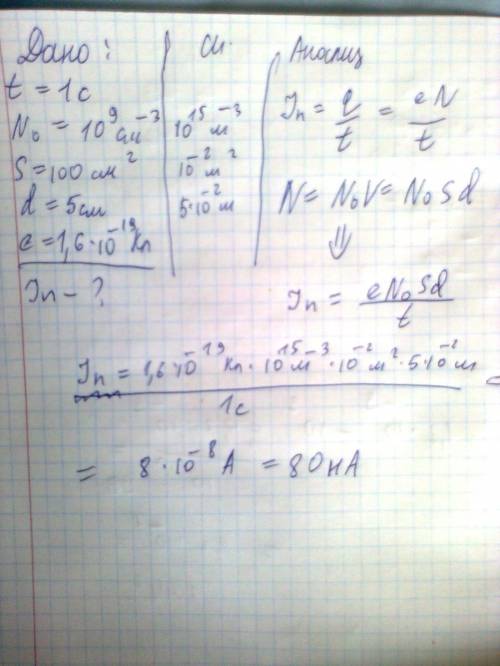 Дано:
t = 1c
N₀ = 10⁹ см⁻³
S = 100 см²
d = 5 см
e = 1,6·10⁻¹⁹ Кл
Iн - ?
Си.
10¹⁵ м⁻³
10⁻² м²
5·10⁻² м
Анализ
Iн = q/t = eN/t
N = N₀V = N₀Sd
⇓
Iн = eN₀Sd/t
Iн = 1,6·10⁻¹⁹ Кл · 10¹⁵ м⁻³ · 10⁻² м² · 5·10⁻² м / 1c =
= 8·10⁻⁸ A = 80 нА